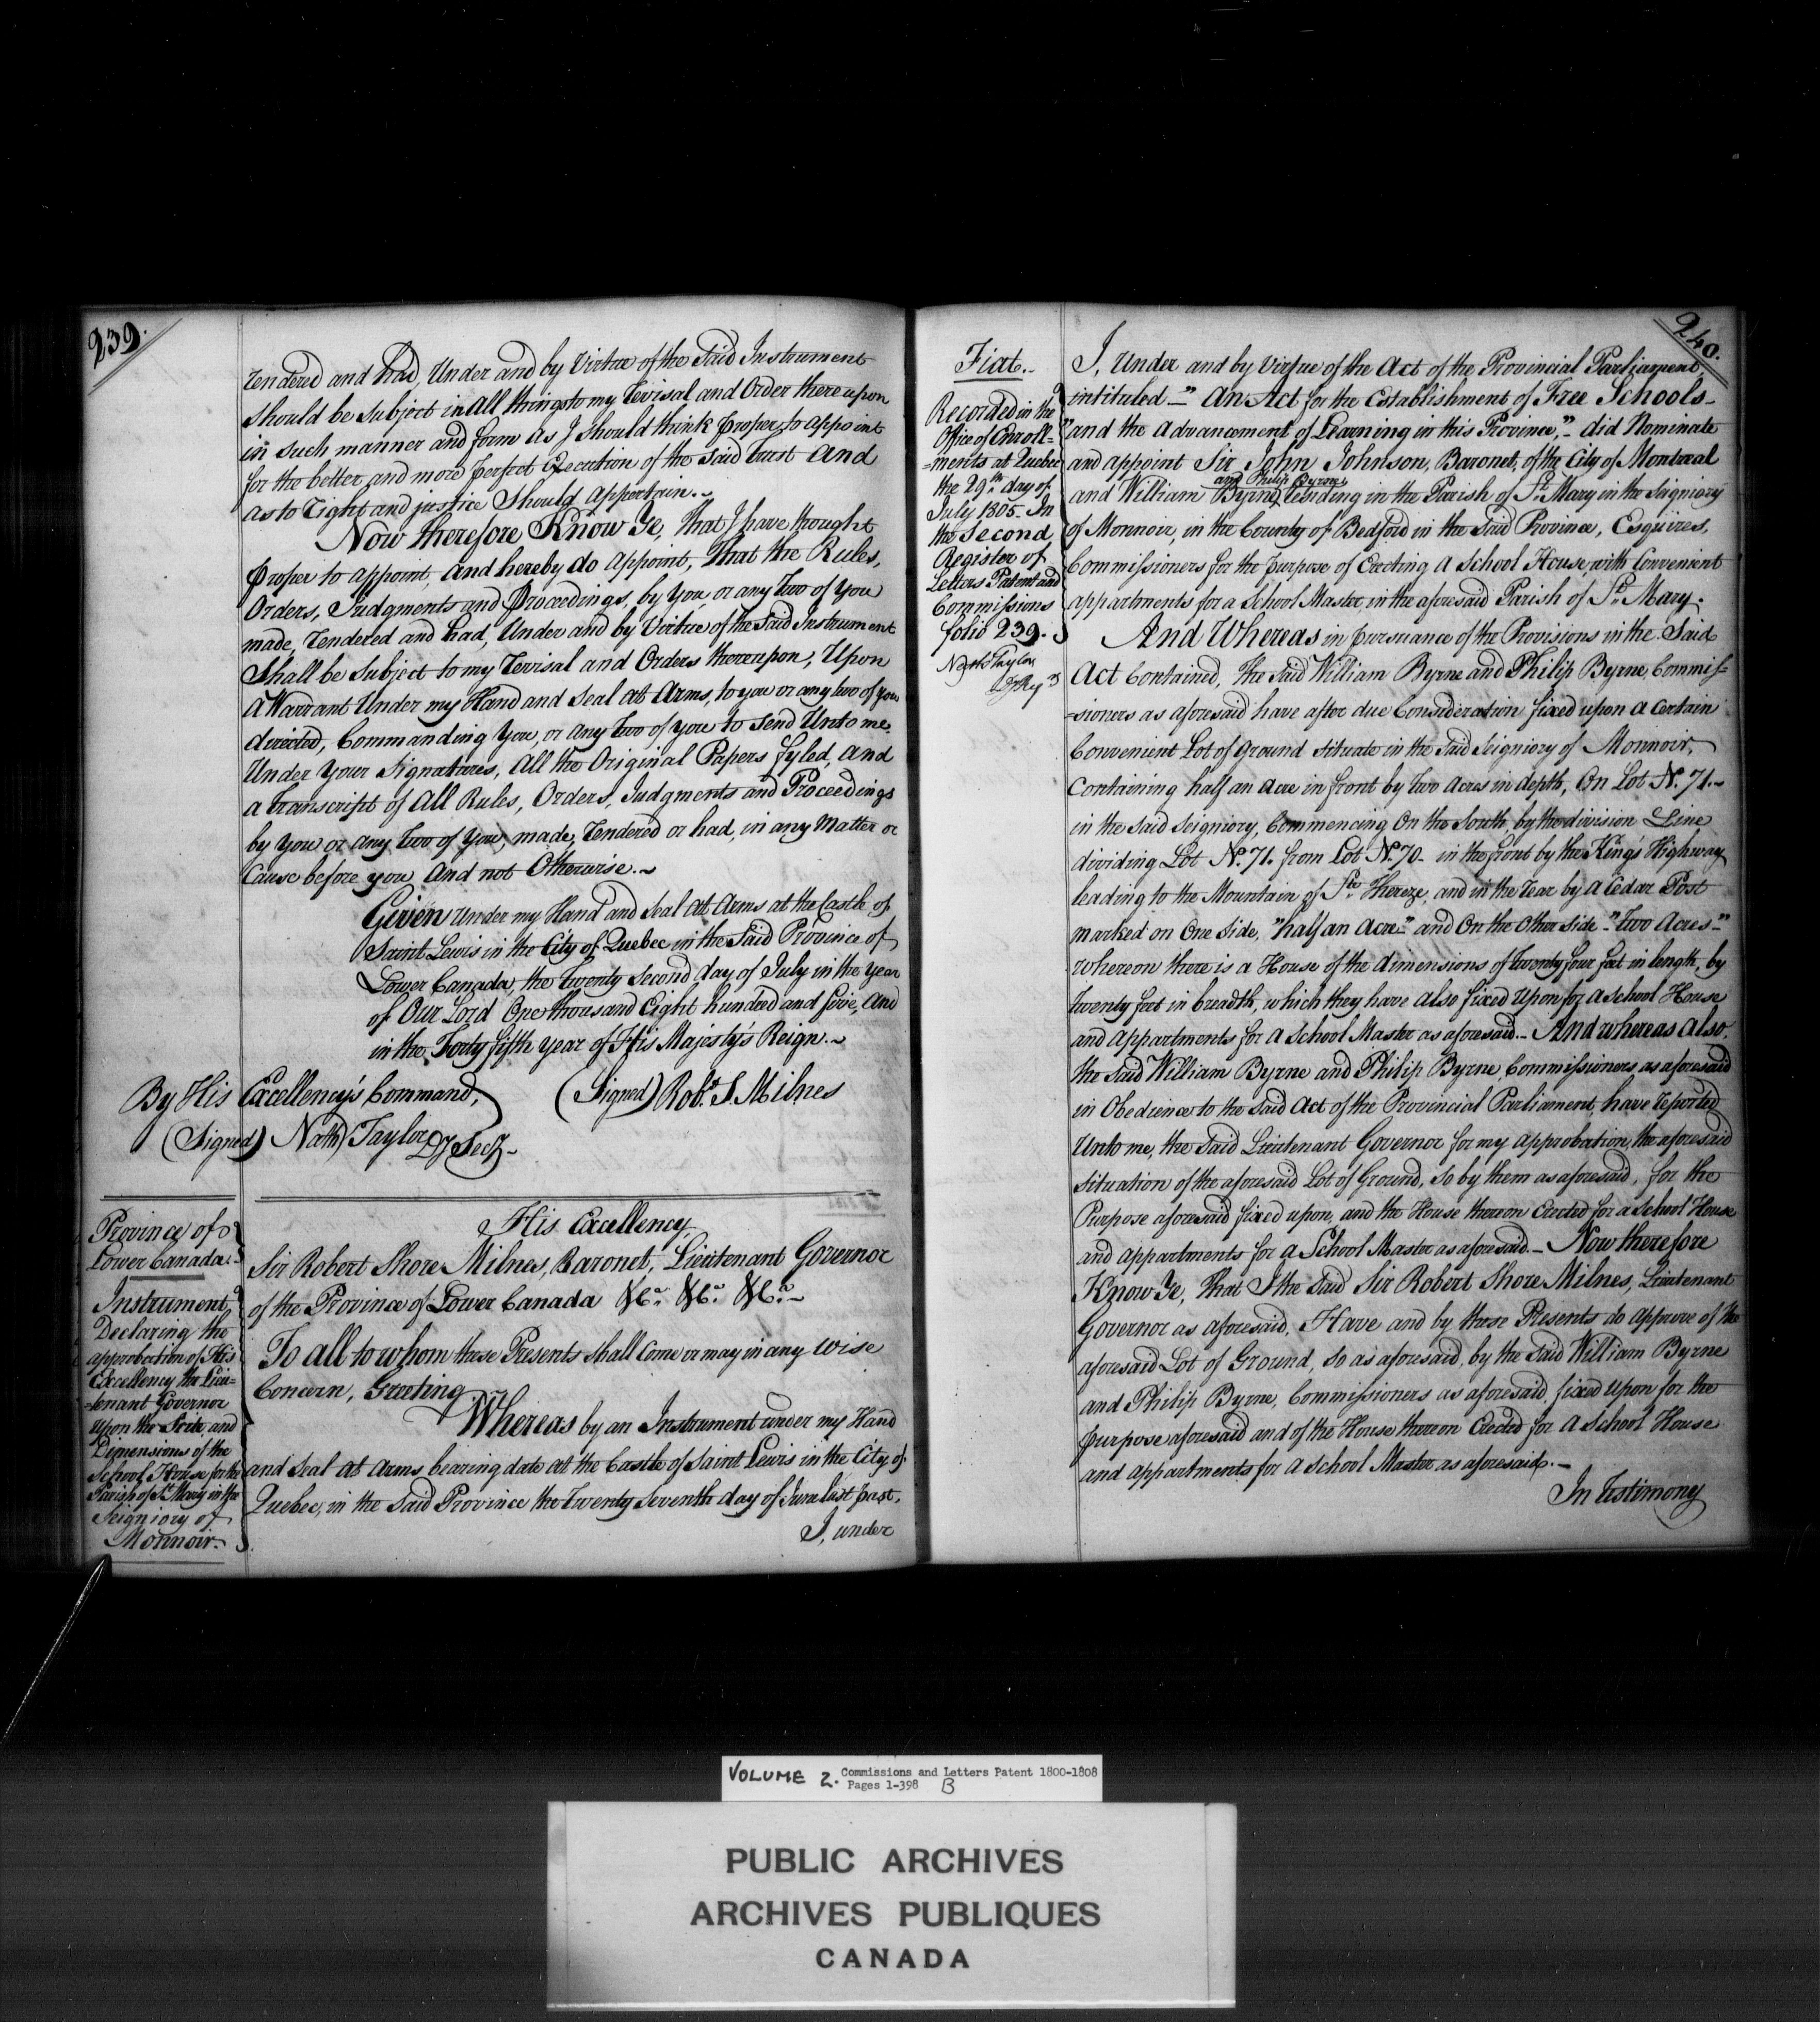 239.
rendered and had, Under and by Virtue of the Said Instrument
Should be Subject in All things to my revisal and Order thereupon
in such manner and form as I should think proper to appoint
for the better and more perfect Execution of the said trust and
as to right and justice Should appertain.~
Now therefore Know Ye, That I have thought
proper to appoint, And hereby do appoint, That the Rules,
Orders, Judgments and Proceedings, by You, or any two of You
made, rendered and had, Under and by Virtue of the Said Instrument
Shall be Subject to my revisal and Orders thereupon, Upon
a Warrant Under my Hand and Seal at Arms, to you or any two of you
directed, Commanding You, or any two of you to send Unto me,
Under Your Signatures, All the Original Papers fyled, and
a transcript of All Rules, Orders, Judgments and Proceedings
by You or any two of You, made, rendered or had, in any Matter or
Cause before you, And not Otherwise.~
Given under my Hand and Seal at Arms at the Castle of
Saint Lewis in the City of Quebec in the Said Province of
Lower Canada, the Twenty Second day of July in the Year
of Our Lord One thousand Eight hundred and five, And
in the Forty fifth Year of His Majesty's Reign.~
By His Excellency's Command, (Signed) Rob.t S. Milnes
(Signed) Nath Taylor Dy Secy.
Province of
Lower Canada.
Instrument
Declaring the
approbation of His
Excellency the Lieu=
=tenant Governor
upon the Scite, and
Dimensions of the
School House for the
Parish of St. Mary in the
Seigniory of
Monnoir.
His Excellency
Sir Robert Shore Milnes, Baronet, Lieutenant Governor
of the Province of Lower Canada &c. &c. &c.
To all to whom these Presents shall Come or may in any wise
Concern, Greeting
Whereas by an Instrument under my Hand
and Seal at Arms bearing date at the Castle of Saint Lewis in the City of
Quebec, in the Said Province the Twenty Seventh day of June last past,
I, under
240.
Fiat.
Recorded in the
Office of Enroll=
=ments at Quebec
the 29th day of
July 1805. In
the Second
Register of
Letters Patent and
Commissions
folio 239.
Nath Taylor
Dy Regr
I, Under and by Virtue of the Act of the Provincial Parliament
intituled "An Act for the Establishment of Free Schools
"and the Advancement of Learning in this Province," did Nominate
and appoint Sir John Johnson, Baronet, of the City of Montreal
and Philip Byrne
and William Byrne, residing in the Parish of St. Mary in the Seigniory
of Monnoir, in the County of Bedford in the said Province, Esquires,
Commissioners for the purpose of Erecting a School House, with Convenient
appartments for a School Master, in the aforesaid Parish of St. Mary.
And Whereas in pursuance of the Provisions in the Said
Act Contained, the Said William Byrne and Philip Byrne, Commis=
=sioners as aforesaid have after due Consideration fixed upon a Certain
Convenient Lot of ground situate in the said Seigniory of Monnoir,
Containing half an Acre in front by two Acres in depth, On Lot No. 71.
in the said Seigniory, Commencing On the South, by the division Line
dividing Lot No. 71. from Lot No. 70. in the front by the King's Highway
leading to the Mountain of Ste. Thereze, and in the rear by a Cedar Post
marked on One Side, "half an Acre" and On the Other Side "two Acres"
whereon there is a House of the dimensions of twenty four feet in length, by
twenty feet in breadth, which they have also fixed Upon for a School House
and appartments for a School Master as aforesaid. And whereas also,
the said William Byrne and Philip Byrne, Commissioners as aforesaid
in Obedience to the Said Act of the Provincial Parliament, have reported
Unto me, the Said Lieutenant Governor for my approbation, the aforesaid
situation of the aforesaid Lot of Ground, so by them as aforesaid, for the
Purpose aforesaid fixed upon, and the House thereon Erected for a School House
and appartments for a School Master as aforesaid. Now therefore
Know Ye, that I the Said Sir Robert Shore Milnes, Lieutenant
Governor as aforesaid, Have and by these Presents do approve of the
aforesaid Lot of Ground, so as aforesaid, by the Said William Byrne
and Philip Byrne, Commissioners as aforesaid, fixed upon for the
purpose aforesaid and of the House thereon Erected for a School House
and appartments for a School Master as aforesaid.
In testimony
VOLUME 2. Commissions and Letters Patent 1800-1808
Pages 1-398 B
PUBLIC ARCHIVES
ARCHIVES PUBLIQUES
CANADA